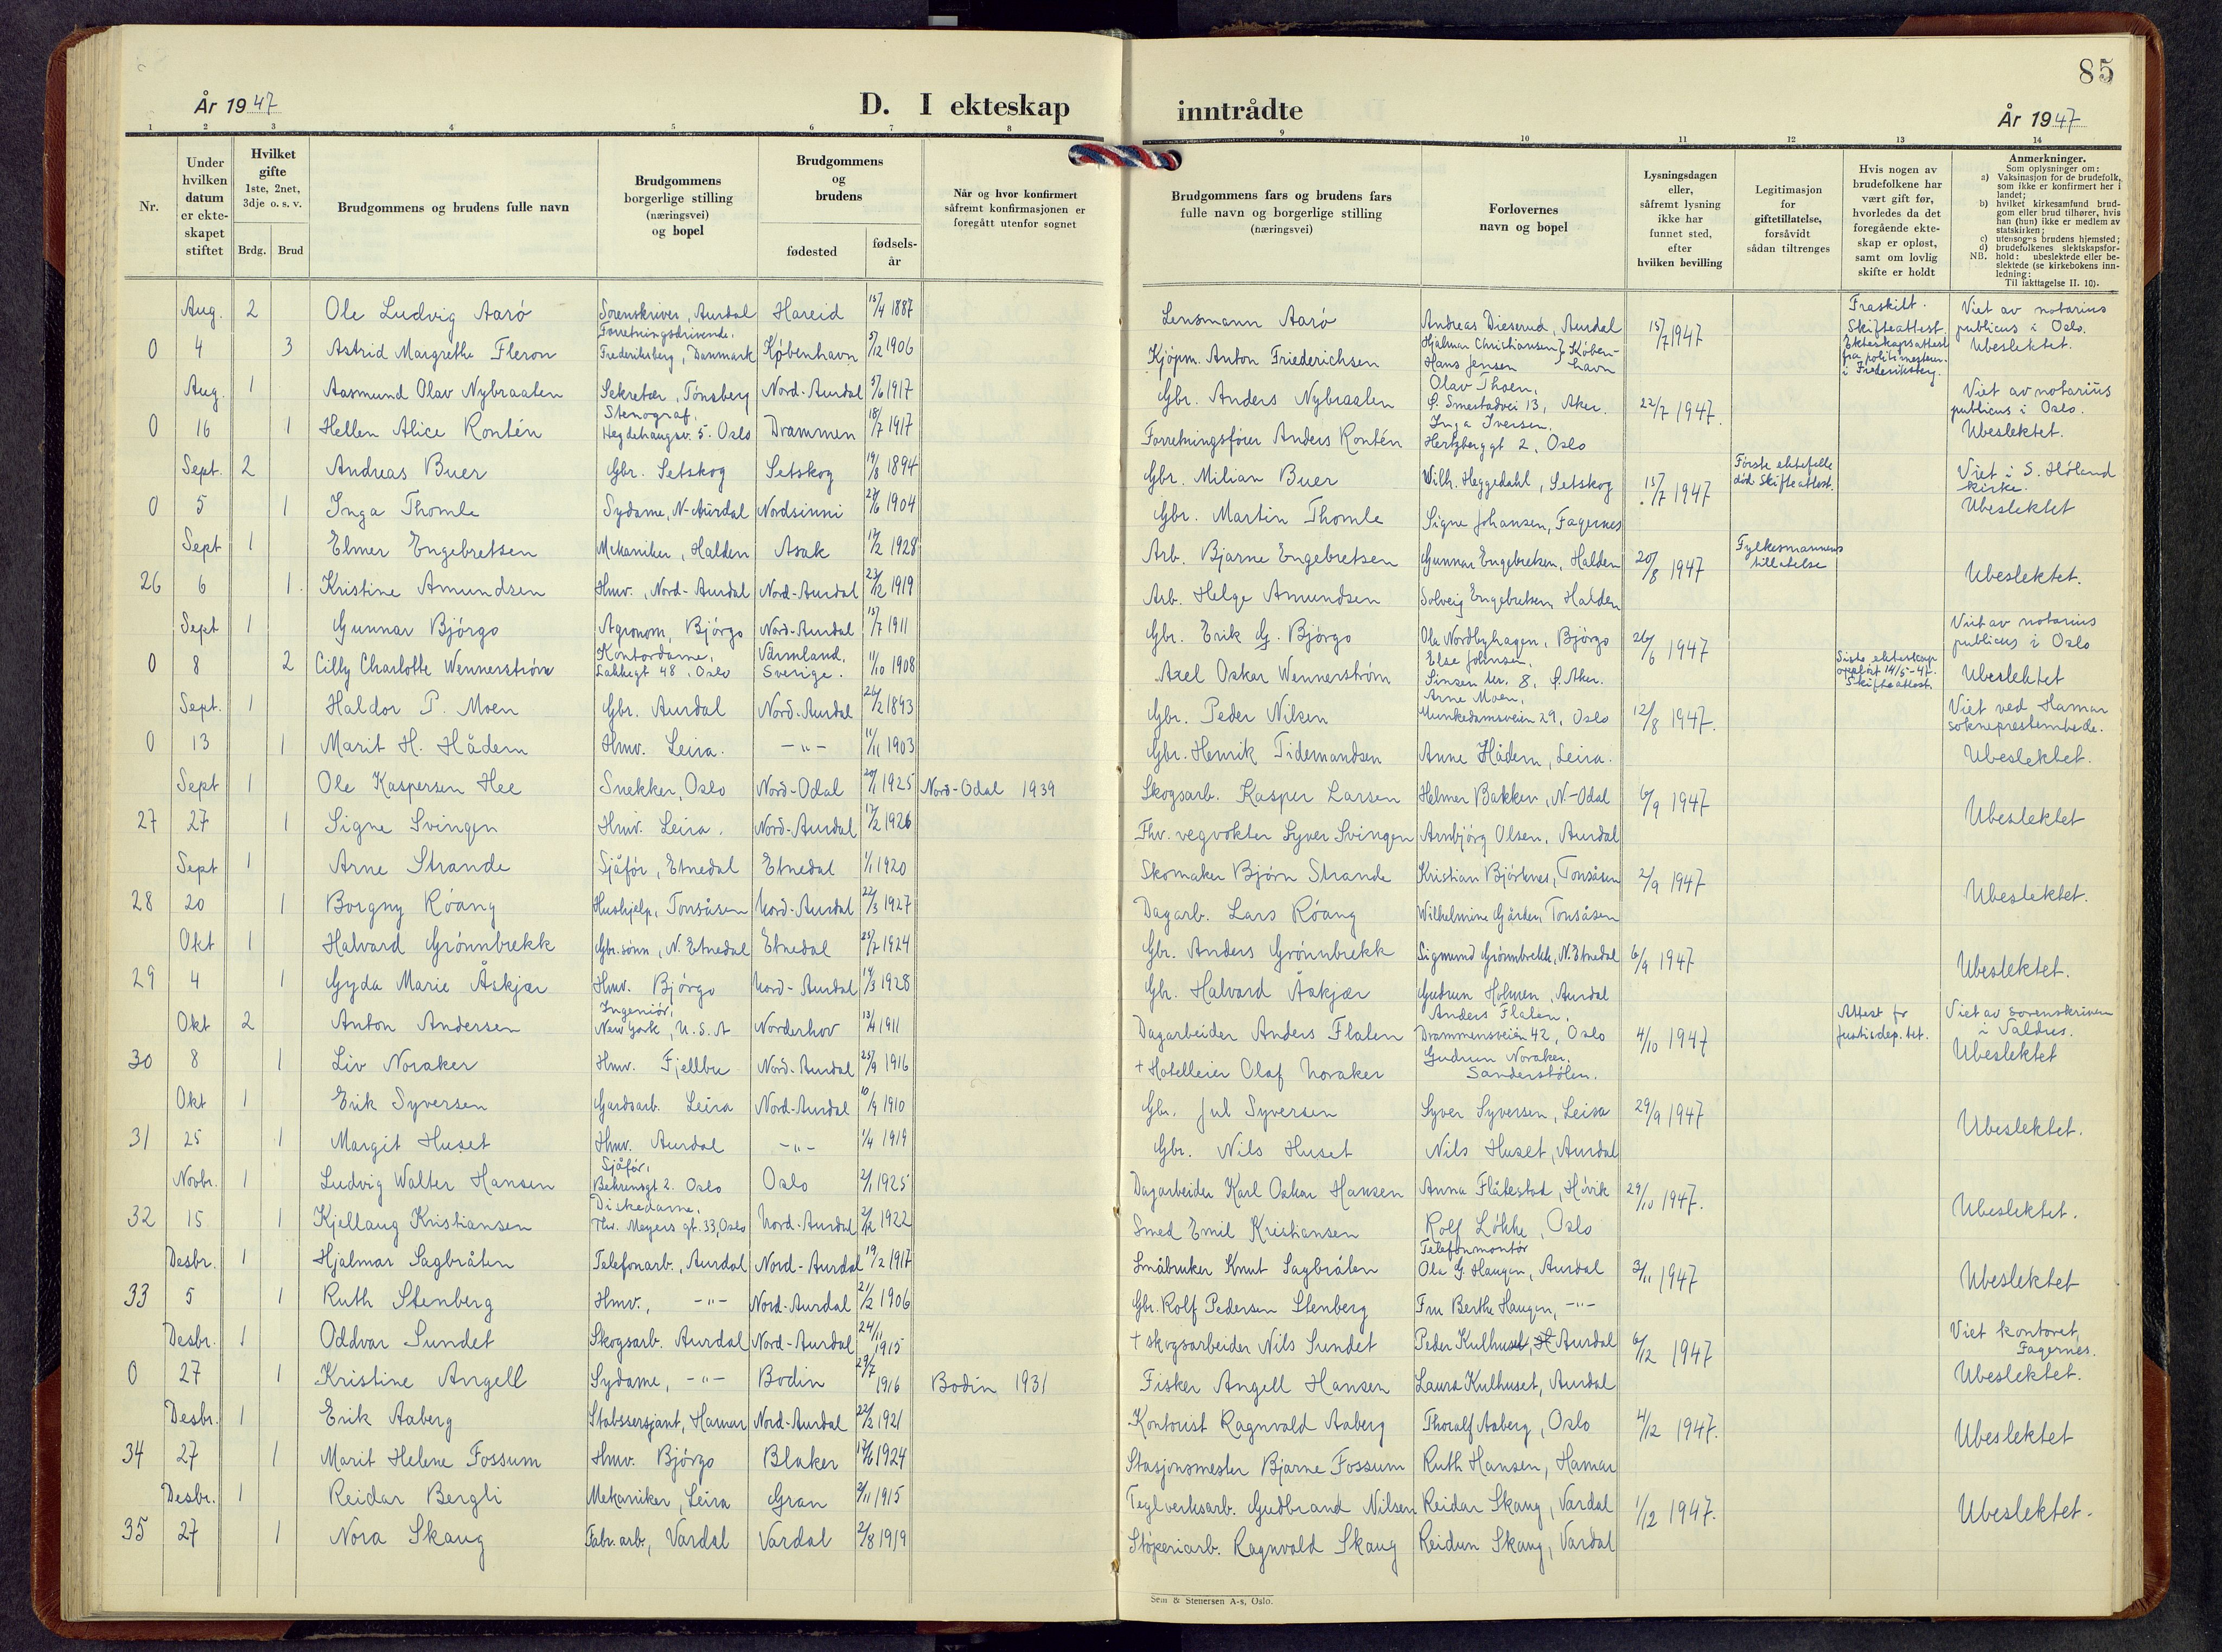 85
År 1947
D. I ekteskap inntrådte
År 1947
1 2 3 4 5 6 7 8 9 10 11 12 13 14
Nr.
Under hvilken datum er ekte-skapet stiftet
Hvilket gifte 1ste, 2net, 3dje o. s. v.
Brdg. Brud
Brudgommens og brudens fulle navn
Brudgommens borgerlige stilling (næringsvei) og bopel
Brudgommens og brudens
fødested fødsels-år
Når og hvor konfirmert såfremt konfirmasjonen er foregått utenfor sognet
Brudgommens fars og brudens fars fulle navn og borgerlige stilling (næringsvei)
Forlovernes navn og bopel
Lysningsdagen eller, såfremt lysning ikke har funnet sted, efter hvilken bevilling
Legitimasjon for giftetillatelse, forsåvidt sådan tiltrenges
Hvis nogen av brudefolkene har vært gift før, hvorledes da det foregående ekte-skap er opløst, samt om lovlig skifte er holdt
Anmerkninger.
Som oplysninger om:
a) Vaksinasjon for de brudefolk, som ikke er konfirmert her i landet;
b) hvilket kirkesamfund brud-gom eller brud tilhører, hvis han (hun) ikke er medlem av statskirken;
c) utensogns brudens hjemsted;
d) brudefolkenes slektskapsfor-hold: ubeslektede eller be-slektede (se kirkebokens inn-ledning:
NB. Til iakttagelse II. 10).
Aug. 2 Ole Ludvig Aarö Sorenskriver, Aurdal Hareid 15/4 1887 Lensmann Aarö Andreas Dieserud, Aurdal 15/7 1947 Fraskilt. Skifteattest. Viet av notarius publicus i Oslo.
0 4 3 Astrid Margrethe Fleron Forretningsdrivende. Frederiksberg, Danmark København 5/12 1906 Kjöpm. Anton Friederichsen Hjalmar Christiansen } Köben- Hans Jensen } havn Ekteskapsattest fra politimesteren i Frederiksberg. Ubeslektet.
Aug. 1 Aasmund Olav Nybraaten Sekretær, Tønsberg Nord-Aurdal 5/6 1917 Gbr. Anders Nybraaten Olav Thoen, S. Smestadvei 13, Aker. 22/7 1947. Viet av notarius publicus i Oslo.
0 16 1 Hellen Alice Rontén Stenograf, Hegdehaugsv. 5. Oslo Drammen 18/7 1917 Forretningsförer Anders Rontén Inga Iversen, Hertzberggt 2, Oslo Ubeslektet.
Sept. 2 Andreas Buer Gbr. Setskog Setskog 19/8 1894 Gbr. Milian Buer Wilh. Heggedahl, Setskog 15/7 1947 Förste ektefelle död Skifteattest. Viet i S. Höland kirke.
0 5 1 Inga Thomle Sydame, N-Aurdal Nordsinni 24/6 1904 Gbr. Martin Thomle Signe Johansen, Fagernes Ubeslektet
Sept 1 Elmer Engebretsen Mekaniker, Halden Asak 17/2 1928 Arb. Bjarne Engebretsen Gunnar Engebretsen, Halden 20/8 1947 Fylkesmannens tillatelse
26 6 1. Kristine Amundsen Hmv., Nord-Aurdal Nord-Aurdal 23/12 1919 Arb. Helge Amundsen Solveig Engebretsen Halden Ubeslektet.
Sept 1 Gunnar Björgo Agronom, Björgo Nord-Aurdal 15/7 1911 Gbr. Erik G. Björgo Ola Nordbyhagen, Björgo 26/6 1947 Viet av notarius publicus i Oslo
0 8 2 Cilly Charlotte Wennerström Kontordame, Lakkegt 48, Oslo Värmland, Sverige. 11/10 1908 Axel Oskar Wennerström Else Johnsen, Sinsen ter. 8, Aker. Siste ekteskap oppløst 14/5-47. Skifteattest. Ubeslektet
Sept. 1 Haldor P. Moen Gbr. Aurdal Nord-Aurdal 26/2 1893 Gbr. Peder Nilsen Arne Moen, Munkedamsveien 29, Oslo 12/8 1947. Viet ved Hamar sokneprestembede.
0 13 1 Marit H. Hådem Hmv. Leira. -"- 11/11 1903 Gbr. Henrik Tidemandsen Anne Hådem, Leira. Ubeslektet.
Sept 1 Ole Kaspersen Hee Snekker, Oslo Nord-Odal 20/1 1925 Nord-Odal 1939 Skogsarb. Kasper Larsen Helmer Bakken, N-Odal 6/9 1947
27 27 1 Signe Svingen Hmv. Leira. Nord-Aurdal 17/2 1926 Fhv. vegvokter Syver Svingen Arnbjörg Olsen, Aurdal Ubeslektet
Sept 1 Arne Strande Sjåför, Etnedal Etnedal 1/1 1920 Skomaker Björn Strande Kristian Björknes, Tonsåsen 2/9 1947
28 20 1 Borgny Röang Hushjelp, Tonsåsen Nord-Aurdal 22/3 1927 Dagarb. Lars Röang Wilhelmine Gården Tonsåsen Ubeslektet.
Okt 1 Halvard Grönnbrekk Gbr.sönn, N. Etnedal Etnedal 25/7 1924 Gbr. Anders Grönnbrekk Sigmund Grönnbrekk, N. Etnedal 6/9 1947
29 4 1 Gyda Marie Åskjær Hmv. Björgo Nord-Aurdal 14/3 1928 Gbr. Halvard Åskjær Gudrun Holmen, Aurdal Ubeslektet.
Okt 2 Anton Andersen Ingeniör, New York, U.S.A Norderhov 13/4 1911 Dagarbeider Anders Flaten Anders Flaten, Drammensveien 42, Oslo 4/10 1947 Attest fr Justisdep.tet. Viet av sorenskriveren i Valdres.
30 8 1 Liv Noraker Hmv. Fjellbu Nord-Aurdal 25/9 1916 + Hotelleier Olaf Noraker Gudrun Noraker, Sanderstölen. Ubeslektet
Okt 1 Erik Syversen Gardsarb. Leira Nord-Aurdal 10/9 1910 Gbr. Jul Syversen Syver Syversen, Leira 29/9 1947
31 25 1 Margit Huset Hmv. Aurdal -"- 1/4 1919 Gbr. Nils Huset Nils Huset, Aurdal Ubeslektet.
Novbr. 1 Ludvig Walter Hansen Sjåför, Behrensgt 2. Oslo Oslo 2/1 1925 Dagarbeider Karl Oskar Hansen Anna Flåtestad, Hövik 29/10 1947.
32 15 1 Kjellaug Kristiansen Diskedame, Thv. Meyers gt. 33, Oslo Nord-Aurdal 2/12 1922 Smed Emil Kristiansen Rolf Lökke, Oslo Ubeslektet.
Desbr. 1 Hjalmar Sagbråten Telefonarb., Aurdal Nord-Aurdal 19/2 1917 Småbruker Knut Sagbråten Telefonmontör Ola G. Haugen, Aurdal 3/11 1947
33 5 1 Ruth Stenberg Hmv., -"- Nord-Aurdal 21/2 1906 Gbr. Rolf Pedersen Stenberg Fru Berthe Haugen, -"- Ubeslektet
Desbr. 1 Oddvar Sundet Skogsarb. Aurdal Nord-Aurdal 24/11 1915 + skogsarbeider Nils Sundet Peder Kulhuset, Aurdal 6/12 1947 Viet kontoret, Fagernes.
0 27 1 Kristine Angell Sydame, -"- Bodin 29/7 1916 Bodin 1931 Fisker Angell Hansen Laura Kulhuset, Aurdal Ubeslektet.
Desbr. 1 Erik Aaberg Stabssersjant, Hamar Nord-Aurdal 22/2 1921 Kontorist Ragnvald Aaberg Thoralf Aaberg, Oslo 4/12 1947.
34 27 1 Marit Helene Fossum Hmv. Björgo Blaker 17/6 1924 Stasjonsmester Bjarne Fossum Ruth Hansen, Hamar Ubeslektet
Desbr. 1 Reidar Bergli Mekaniker, Leira Gran 3/11 1915 Teglverksarb. Gudbrand Nilsen Reidar Skaug, Vardal 1/12 1947.
35 27 1 Nora Skaug Fabr.arb., Vardal Vardal 2/8 1919 Støperiarb. Ragnvald Skaug Reidun Skaug, Vardal Ubeslektet.
Sem & Stenersen A-s, Oslo.